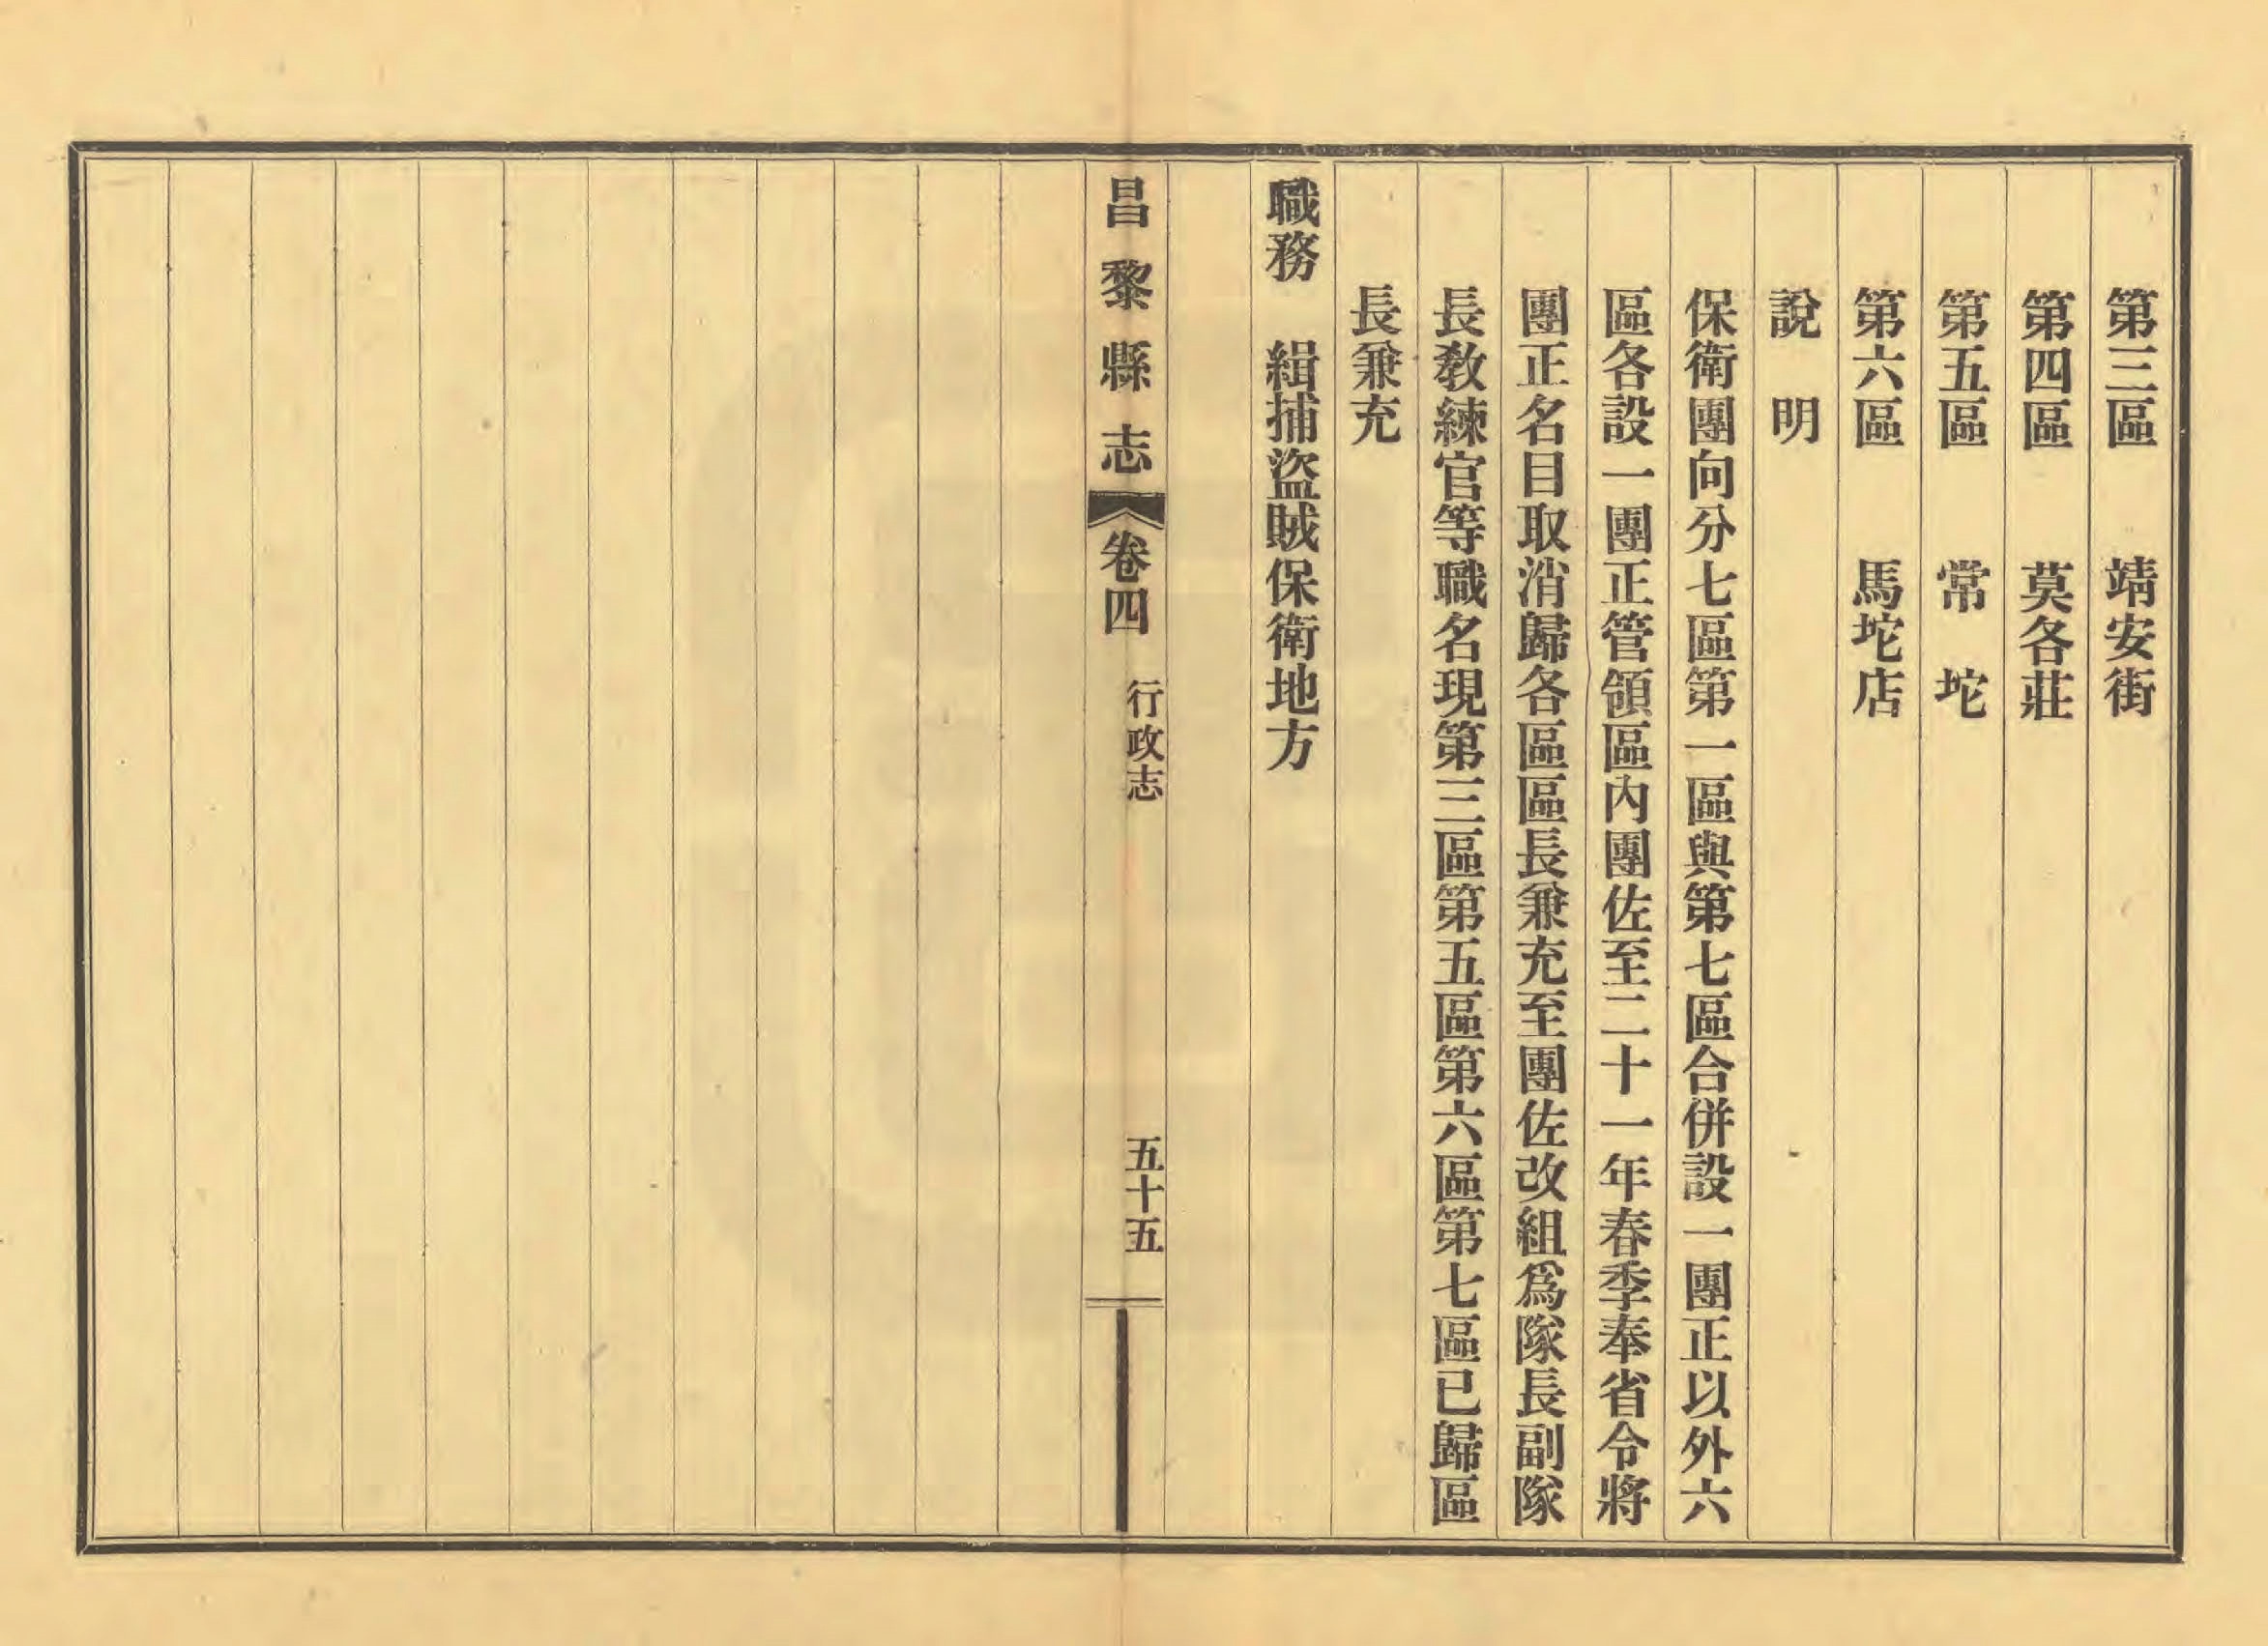 第三區　靖安街
第四區　莫各莊
第五區　常　坨
第六區　馬坨店
說　明
保衛團向分七區第一區與第七區合併設一團正以外六
區各設一團正管領區內團佐至二十一年春季奉省令將
團正名目取消歸各區區長兼充至團佐改組爲隊長副隊
長敎練官等職名現第三區第五區第六區第七區已歸區
長兼充
職務　緝捕盜賊保衛地方
昌黎縣志　卷四　行政志　五十五